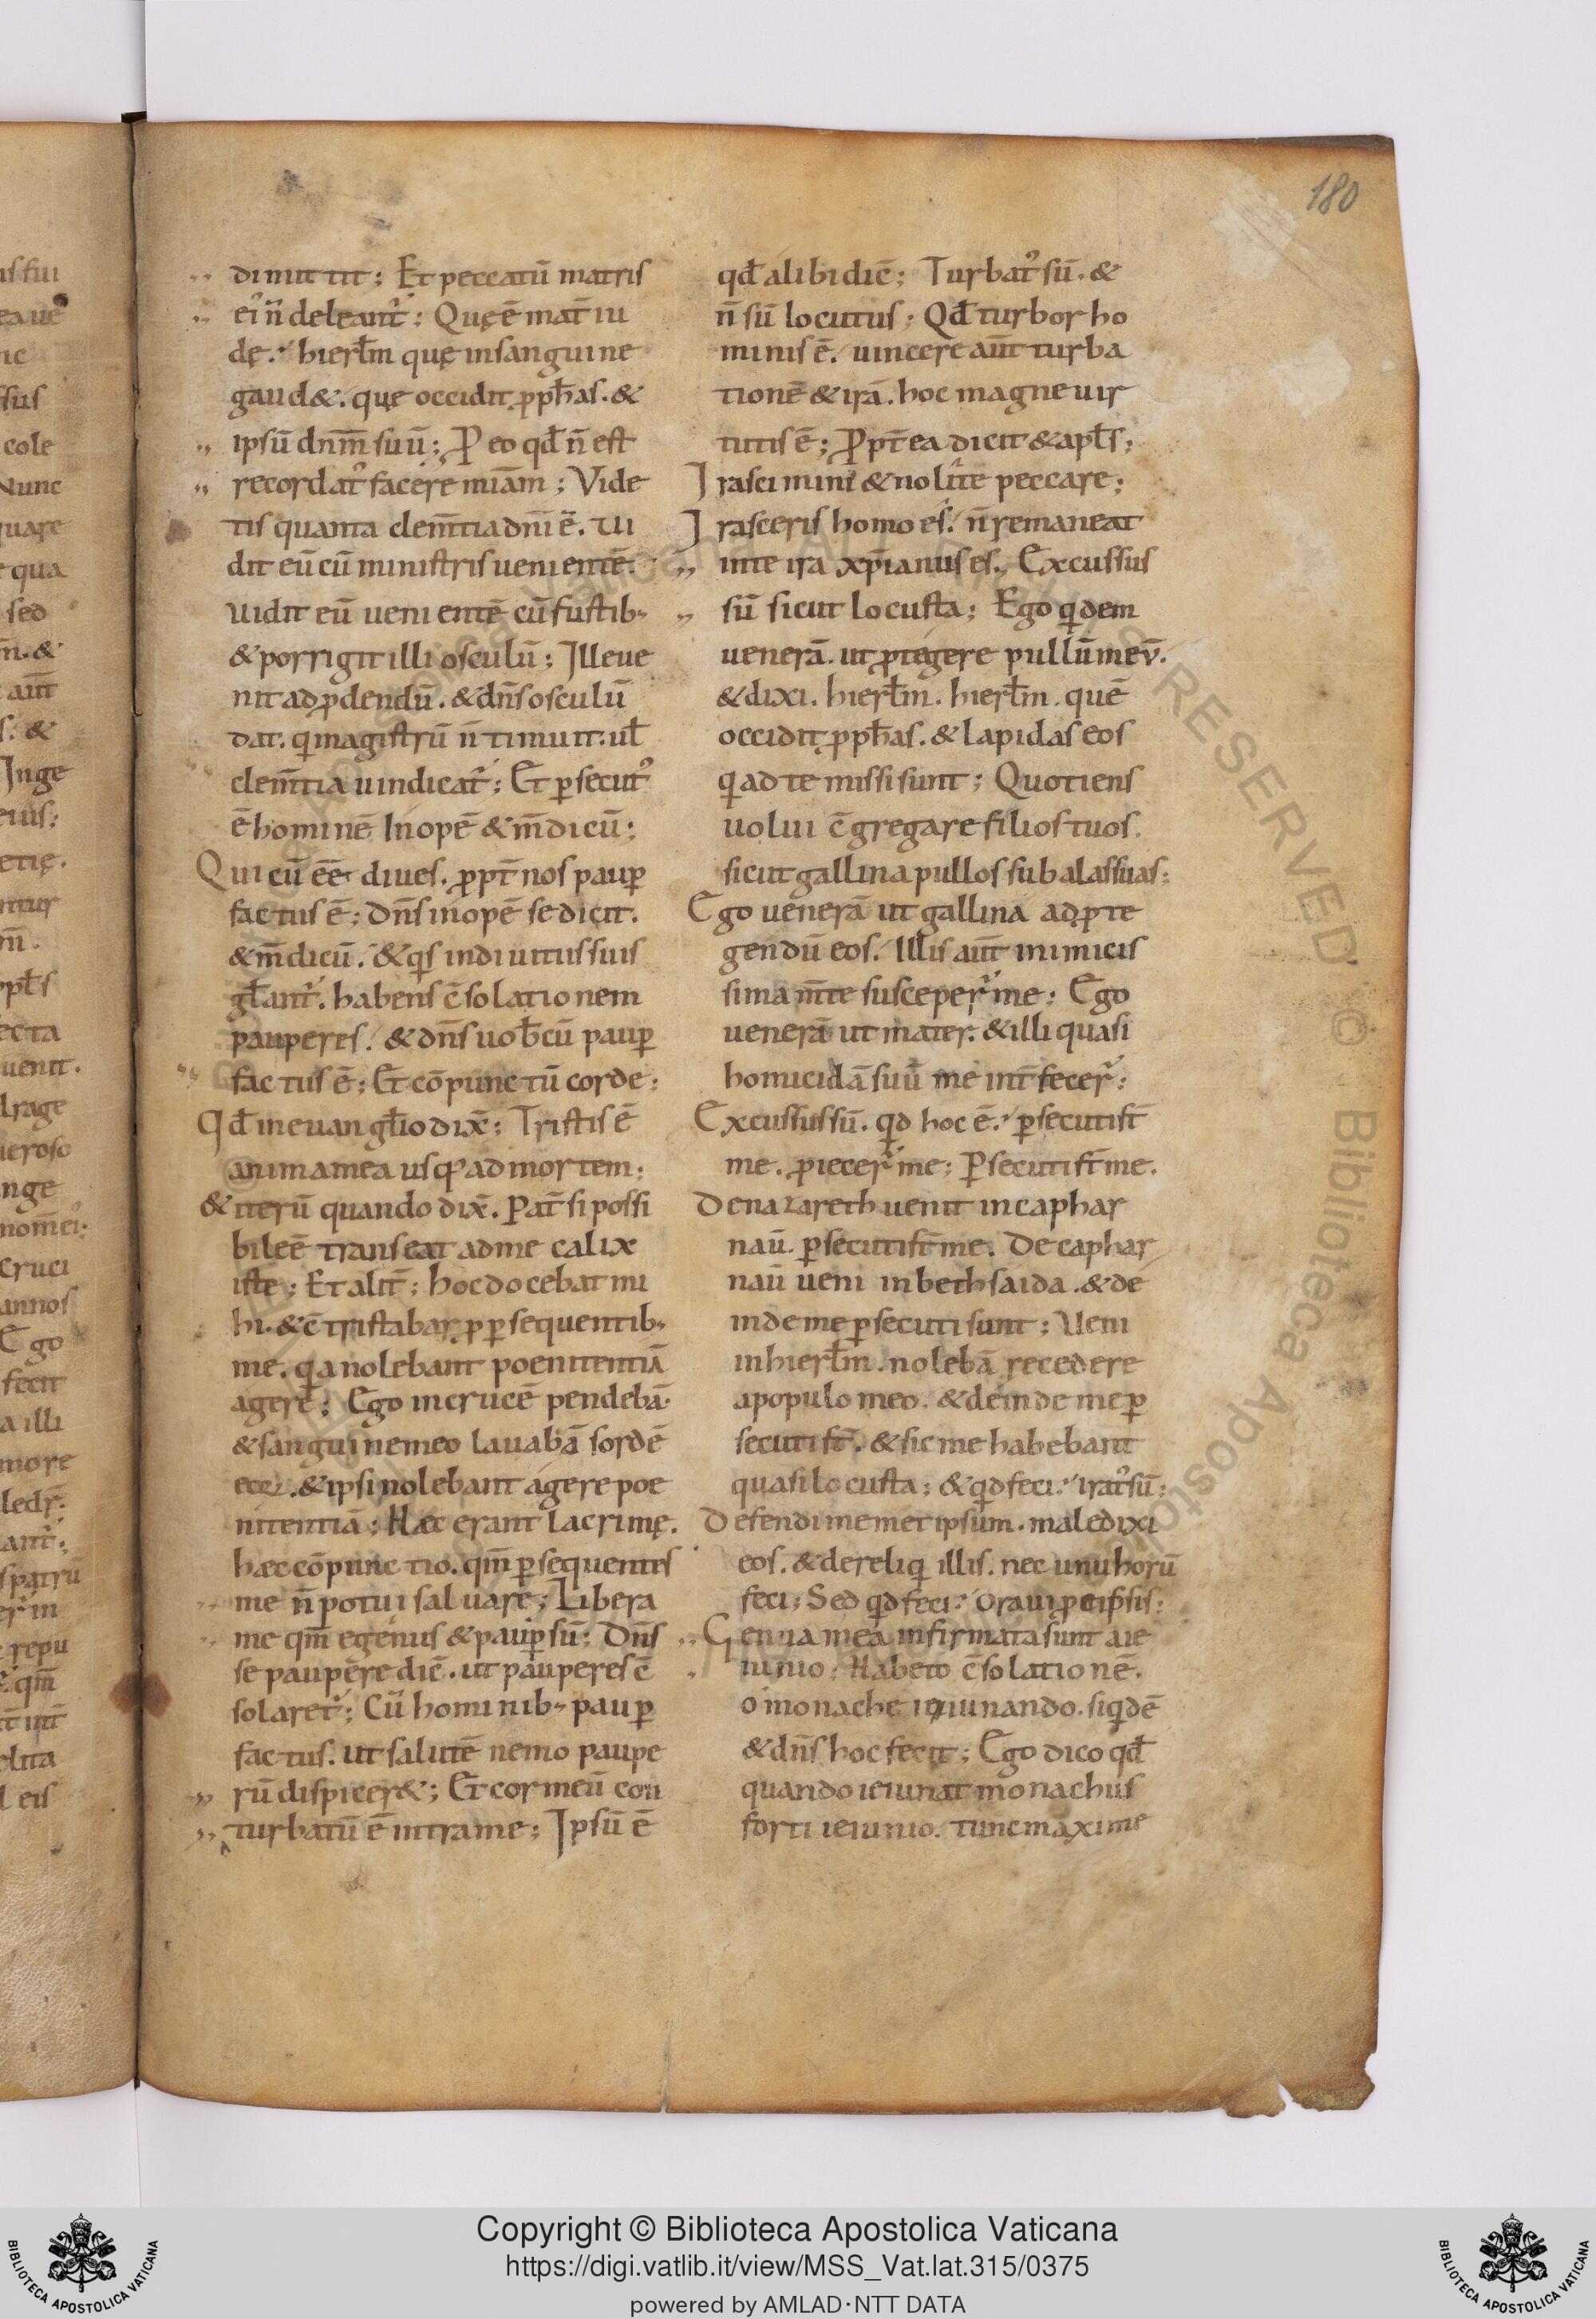 180
dimittit; Et peccatū matris
ei᾽ n̄ deleant᾽; Quęē mat̄ iu
dę.᾽ hierł̄m quę insanguine
gaud&. quę occidit ꝓph̄as. &
ipsū dnm̄ suū; P̱ eo qđ n̄ est
recordat᾽ facere miām; Vide
tis quanta clem̄tia dn̄i ē. Vi
dit eū cū ministris uenientē.
uidit eū uenientē cū fustib;
& porrigit illi osculū; Ille ue
nit adꝓdendū. & dn̄s osculū
dat. q magistrū n̄ timuit. uł
clem̄tia uindicat᾽; Et ꝑsecut᾽
ē hominē Inopē & m̄dicū;
Qui cū eē diues. ꝓpt̄ nos pauꝑ
factus ē; dn̄s inopē se dicit.
& m̄dicū. & qs indiuitus suis
głant᾽. habens c̄solationem
pauperes. & dn̄s uob̄cū pauꝑ
factus ē; Et cōpunctū corde;
Qđ in euangłio dix̄; Tristis ē
anima mea usq; ad mortem;
& iterū quando dix̄. Pat̄ si possi
bile ē transeat ad me calix
iste; Et alit̄; hoc docebat mi
hi. & c̄tristabar ꝓ ꝑsequentib;
me. qa nolebant poenitentiā
agere; Ego in crucē pendebā.
& sanguine meo lauabā sordē
eoꝝ. & ipsi nolebant agere poe
nitentiā; Haec erant lacrimę.
haec cōpunctio. qm̄ ꝑsequentes
me n̄ potui saluare; Libera
me qm̄ egenus & pauꝑ sū; Dn̄s
se paupere dic̄. ut pauperes c̄
solaret᾽; Cū hominib; pauꝑ
factus. ut salutē nemo paupe
rū dispicer&; Et cor meū con
turbatū ē intra me; Ipsū ē
qđ alibi dic̄; Turbat᾽ sū. &
n̄ sū locutus; Qđ turbor ho
minis ē. uincere aūt turba
tionē & irā. hoc magne uir
tutis ē; P̱pt̄ea dicit & apłs;
Irascimini & nolite peccare;
Irasceris homo es. n̄ remaneat
in te ira xp̄ianus es. Excussus
sū sicut locusta; Ego qdem
uenerā. ut ꝓtegere pullū meū.
& dixi. hierł̄m. hierł̄m. quē
occidit ꝓph̄as. & lapidas eos
q ad te missi sunt; Quotiens
uolui c̄gregare filios tuos.
sicut gallina pullos sub alas suas;
Ego uenerā ut gallina adꝓte
gendū eos. Illis aūt inimicis
sima m̄te susceper᾽ me; Ego
uenerā ut mater. & illi quasi
homicidā suū me int̄fecer᾽;
Excussus sū. qd hoc ē.᾽ ꝑsecuti st̄
me. ꝓiecer᾽ me; P̱secuti st̄ me.
De nazareth uenit in caphar
naū. ꝑsecuti st̄ me. De caphar
naū ueni in bethsaida. & de
inde me ꝑsecuti sunt; Veni
in hierł̄m. nolebā recedere
a populo meo. & deinde me ꝑ
secuti st̄. & sic me habebant
quasi locusta; & qd feci.᾽ irat᾽ sū;
Defendi memet ipsum. maledixi
eos. & dereliq illis. nec unu horū
feci; Sed qd feci.᾽ Oraui ꝓ eis ipsis;
Genua mea infirmata sunt a ie
iunio; Habeto c̄solationē.
o monache ieiunando. siqdē
& dn̄s hoc fecit; Ego dico qđ
quando ieiunat monachus
forti ieiunio. tunc maxime
Copyright © Biblioteca Apostolica Vaticana
https://digi.vatlib.it/view/MSS_Vat.lat.315/0375
powered by AMLAD·NTT DATA
BIBLIOTECA APOSTOLICA VATICANA
BIBLIOTECA APOSTOLICA VATICANA